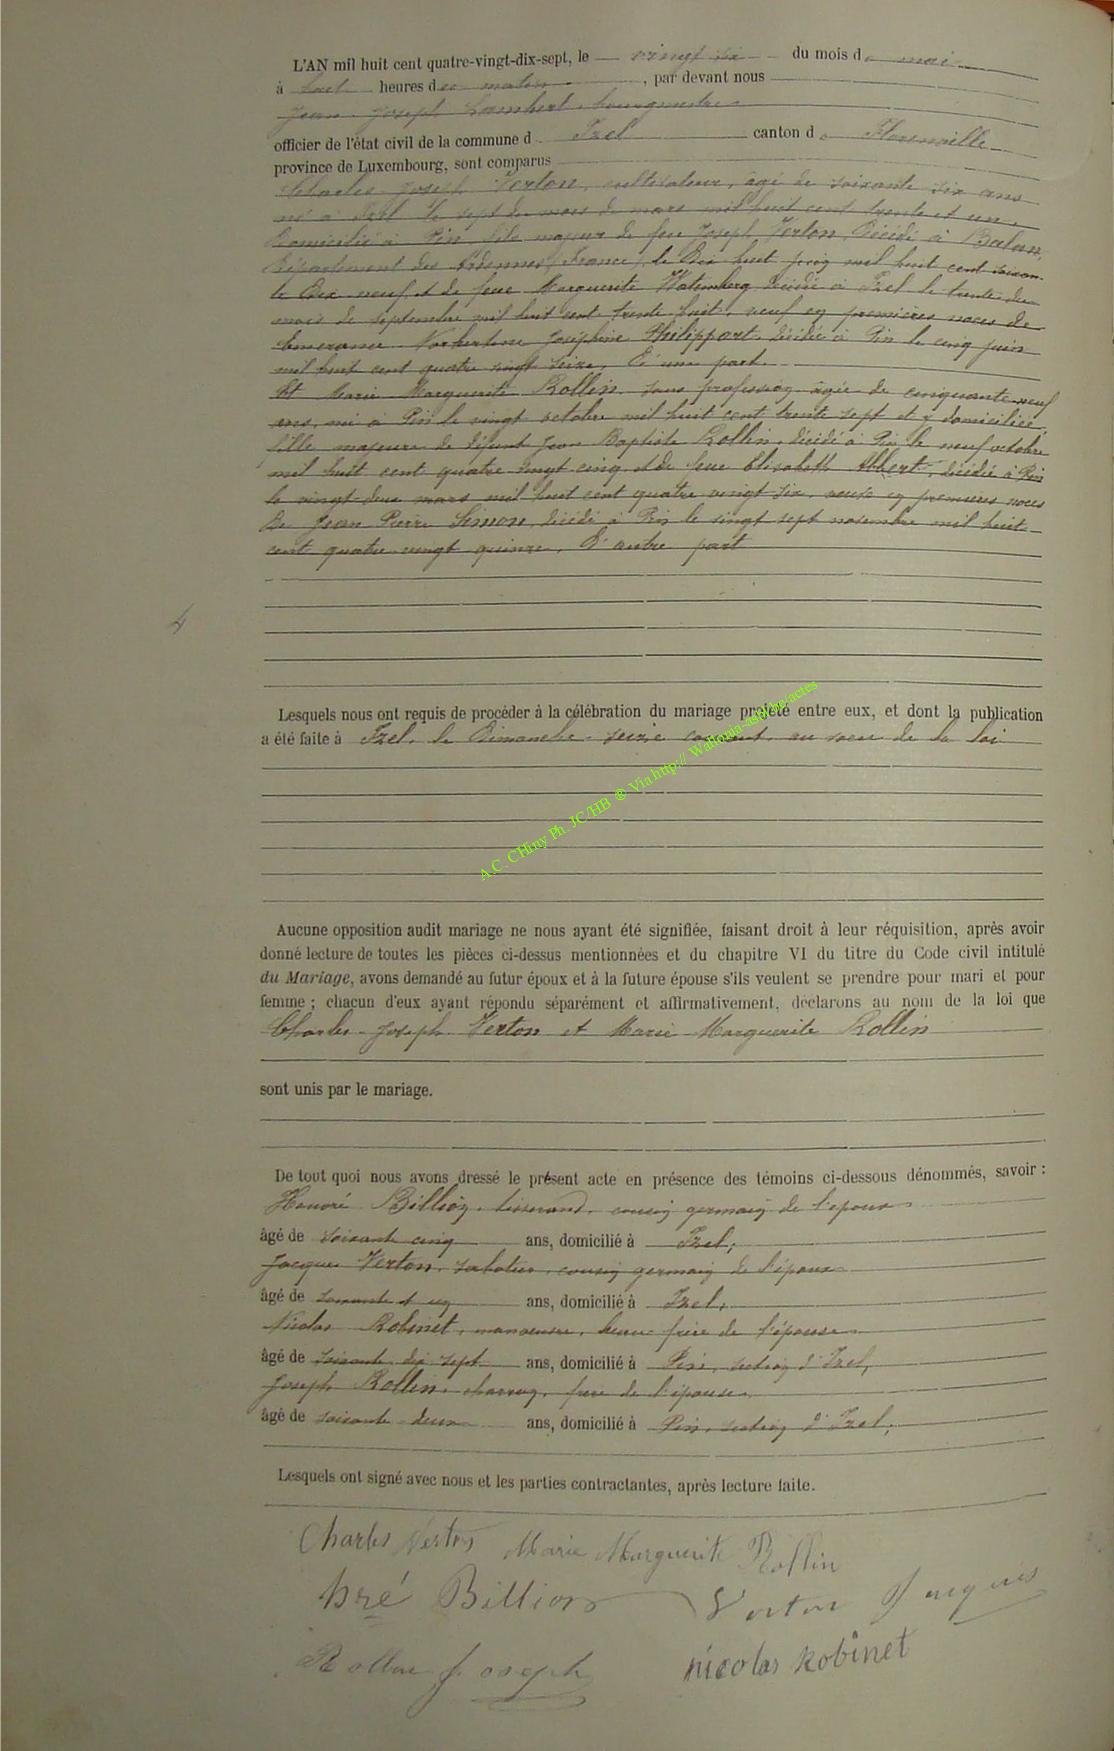 L'AN mil huit cent quatre-vingt-dix-sept, le vingt six du mois de mai
à huit heures du matin, par devant nous
Jean Joseph Lambert, bourgmestre
officier de l'état civil de la commune d Izel canton de Florenville
province de Luxembourg, sont comparus
Charles Joseph Verton, cultivateur, âgé de soixante six ans
né à Izel le sept du mois de mars mil huit cent trente et un
domicilié à Pin, fils majeur de feu Joseph Verton, décédé à Balan,
Département des Ardennes, (France) le dix huit juin mil huit cent soixan-
te dix neuf, et de feue Marguerite Watemberg, décédée à Izel le trente du
mois de septembre mil huit cent trente huit, veuf en premières noces de
Emerance Norbertine Joséphine Philippart, décédée à Pin le cinq juin
mil huit cent quatre vingt seize, D'une part.
Et Marie Marguerite Rollin, sans profession, âgée de cinquante neuf
ans, née à Pin le vingt octobre mil huit cent trente sept et y domiciliée,
fille majeure de défunt Jean Baptiste Rollin, décédé à Pin le neuf octobre
mil huit cent quatre vingt cinq et de feue Elisabeth Albert, décédée à Pin
le vingt deux mars mil huit cent quatre vingt six, veuve en premières noces
de Jean Pierre Simon, décédé à Pin le vingt sept novembre mil huit
cent quatre vingt quinze, D'autre part
4
Lesquels nous ont requis de procéder à la célébration du mariage projeté entre eux, et dont la publication
a été faite à Izel, le Dimanche seize courant, au vœu de la loi
A.C. CHiny Ph. JC/HB ® Via http:// Wallonia-asbl.be/actes
Aucune opposition audit mariage ne nous ayant été signifiée, faisant droit à leur réquisition, après avoir
donné lecture de toutes les pièces ci-dessus mentionnées et du chapitre VI du titre du Code civil intitulé
du Mariage, avons demandé au futur époux et à la future épouse s'ils veulent se prendre pour mari et pour
femme ; chacun d'eux ayant répondu séparément et affirmativement, déclarons au nom de la loi que
Charles Joseph Verton et Marie Marguerite Rollin
sont unis par le mariage.
De tout quoi nous avons dressé le présent acte en présence des témoins ci-dessous dénommés, savoir :
Honoré Billion, tisserand, cousin germain de l'époux
âgé de soixante cinq ans, domicilié à Izel,
Jacques Verton, sabotier, cousin germain de l'époux
âgé de soixante et un ans, domicilié à Izel,
Nicolas Robinet, manœuvre, beau-frère de l'épouse
âgé de soixante dix sept ans, domicilié à Pin, section d'Izel,
Joseph Rollin, charron, frère de l'épouse
âgé de soixante deux ans, domicilié à Pin, section d'Izel,
Lesquels ont signé avec nous et les parties contractantes, après lecture faite.
Charles Verton Marie Marguerite Rollin
hré Billion Verton Jacques
Rollin Joseph nicolas Robinet